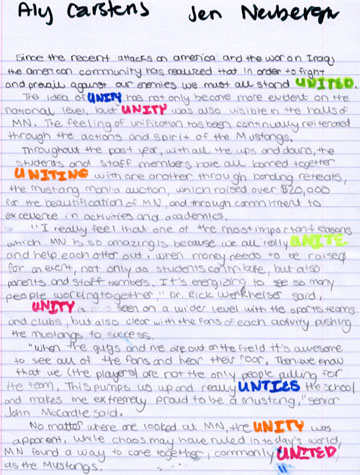 Aly Carstens Jen Neuberger
Since the recent attacks on america and the war on Iraq,
the american community has realized that in order to fight
and prevail against our enemies we must all stand UNITED.
The idea of UNITY has not only become more evident on the
national level, but UNITY was also visible in the halls of
MN. The feeling of unification has been continually reiterated
through the actions and spirit of the Mustangs.
Throughout the past year, with all the ups and downs, the
students and staff members have all banned together
UNITING with one another through bonding retreats,
the mustang mania auction, which raised over $20,000
for the beautification of MN, and through commitment to
excellence in activities and academics.
"I really feel that one of the most important reasons
which MN is so amazing is because we all really UNITE
and help each other out. When money needs to be raised
for an event, not only do students contribute, but also
parents and staff members. It's energizing to see so many
people working together," Dr. Rick Werkheiser said.
UNITY is seen on a wider level with the sports teams
and clubs, but also clear with the fans of each activity pushing
the mustangs to success.
"When the guys and me are out on the field it's awesome
to see all of the fans and hear their roar. Then we know
that we (the players) are not the only people pulling for
the team. This pumps us up and really UNTIES the school
and makes me extremely proud to be a Mustang," senior
John McCardle said.
No matter where are looked at MN, the UNITY was
apparent. While chaos may have ruled in today's world,
MN found a way to come together, commonly UNITED
as the Mustangs.